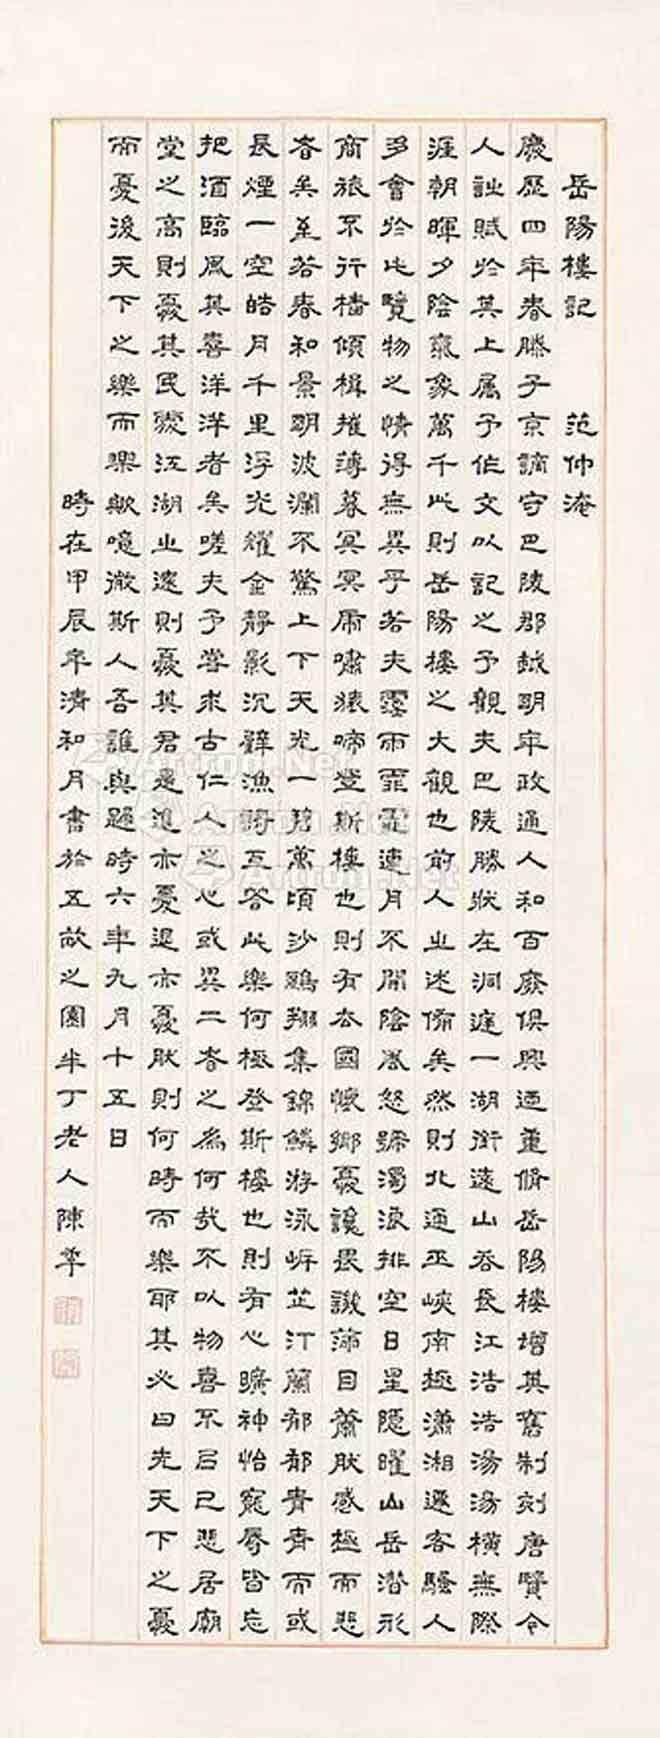 岳陽樓記 范仲淹
慶歷四年春滕子京謫守巴陵郡越明年政通人和百廢俱興迺重脩岳陽樓增其舊制刻唐賢今
人詩賦於其上属予作文以記之予觀夫巴陵勝狀在洞庭一湖銜遠山吞長江浩浩湯湯橫無際
涯朝暉夕陰氣象萬千此則岳陽樓之大觀也前人之述備矣然則北通巫峽南極瀟湘遷客騷人
多會於此覽物之情得無異乎若夫霪雨霏霏連月不開陰風怒號濁浪排空日星隱曜山岳潛形
商旅不行檣傾楫摧薄暮冥冥虎嘯猿啼登斯樓也則有去國懷鄉憂讒畏譏滿目蕭然感極而悲
者矣至若春和景明波瀾不驚上下天光一碧萬頃沙鷗翔集錦鱗游泳岸芷汀蘭郁郁青青而或
長煙一空皓月千里浮光耀金靜影沉璧漁歌互答此樂何極登斯樓也則有心曠神怡寵辱皆忘
把酒臨風其喜洋洋者矣嗟夫予嘗求古仁人之心或異二者之為何哉不以物喜不以己悲居廟
堂之高則憂其民處江湖之遠則憂其君是進亦憂退亦憂然則何時而樂耶其必曰先天下之憂
而憂後天下之樂而樂歟噫微斯人吾誰與歸時六年九月十五日
時在甲辰年清和月書於五故之園半丁老人陳年
Artron.Net
Artron.Net
Artron.Net